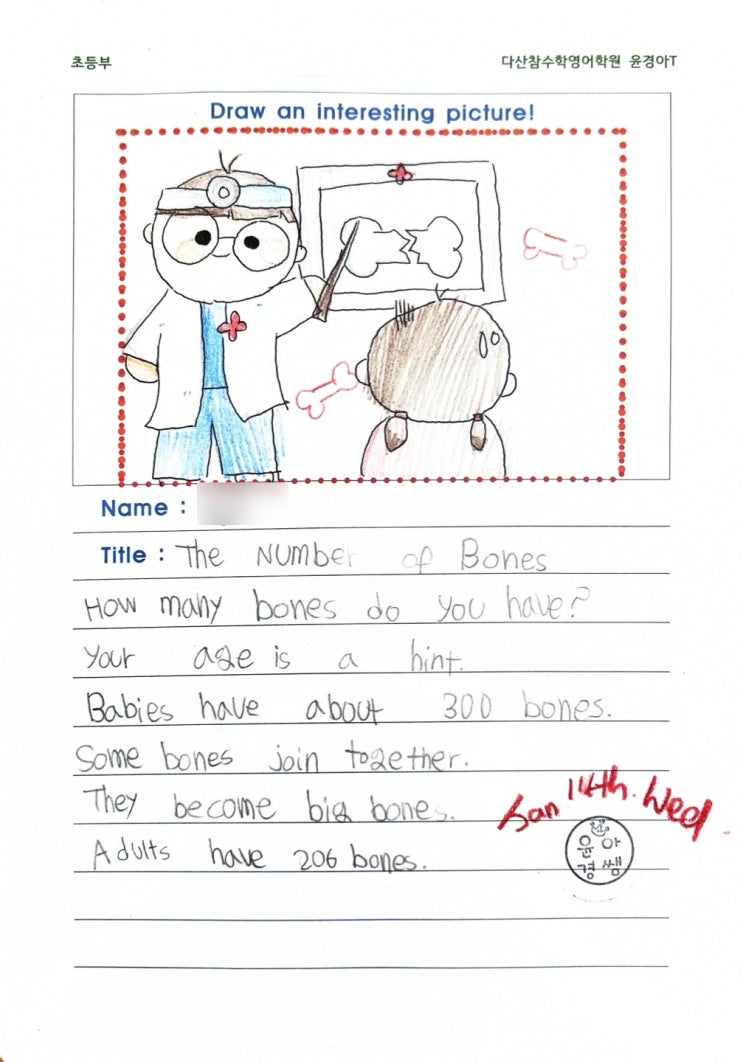 초등부
다산참수학영어학원 윤경아T
Draw an interesting picture!
Name :
Title : The Number of Bones
How many bones do you have?
Your age is a hint.
Babies have about 300 bones.
Some bones join together.
They become big bones.
Jan. 14th. Wed.
Adults have 206 bones.
윤아
경쌤